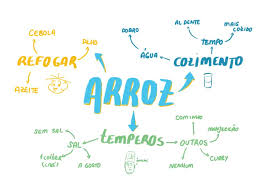 CEBOLA
ALHO
REFOGAR
AZEITE
DOBRO
ÁGUA
AL DENTE
MAIS
COZIDO
TEMPO
COZIMENTO
ARROZ
TEMPEROS
SEM SAL
SAL
1 COLHER
(CAFÉ)
A GOSTO
COMINHO
MANJERICÃO
OUTROS
CURRY
NENHUM